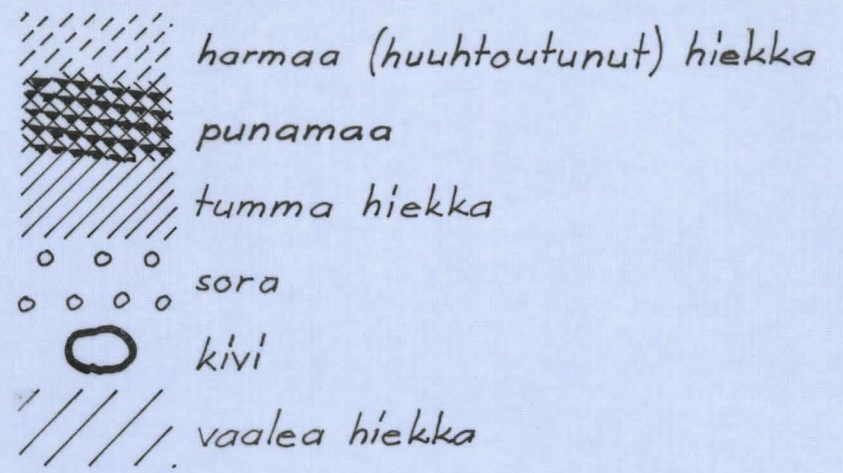 harmaa (huuhtoutunut) hiekka
punamaa
tumma hiekka
sora
kivi
vaalea hiekka